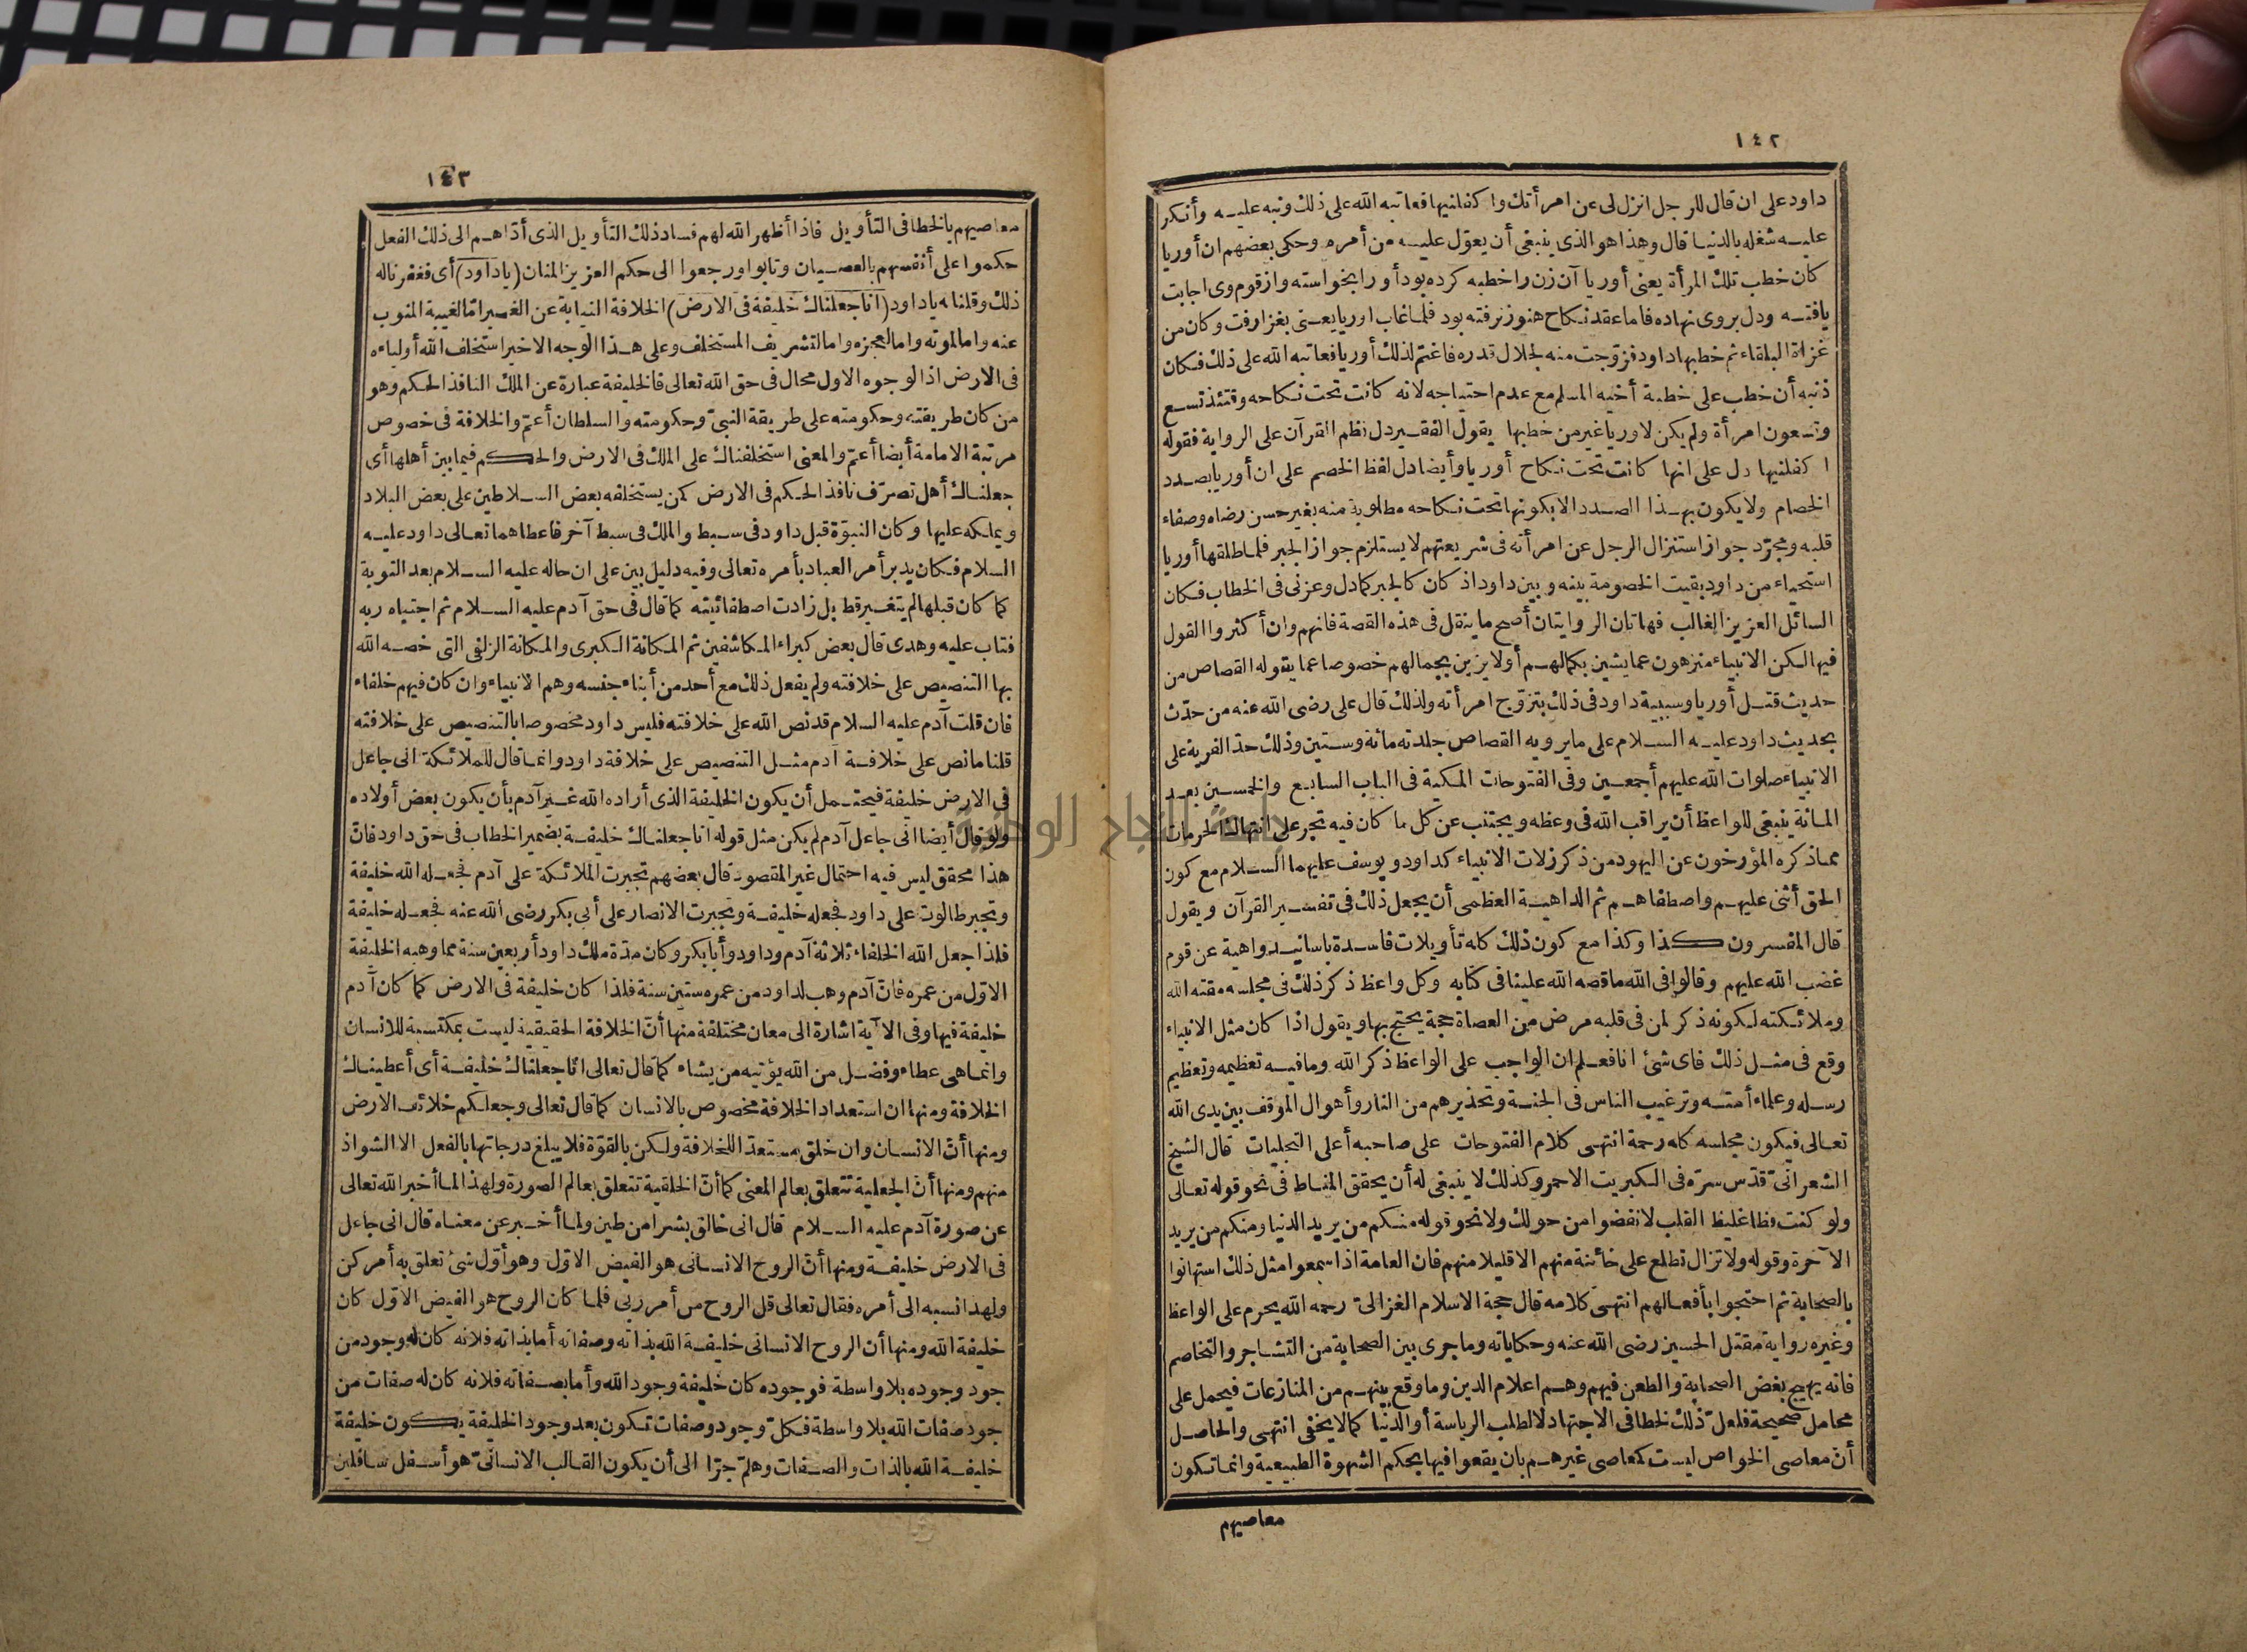 ١٤٢
داود على ان قال للرجل انزل لى عن امرأتك واكفلنيها فعاتبه الله على ذلك ونبه عليه وأنكر
عليه شغله بالدنيا قال وهذا هو الذى ينبغى أن يعوّل عليه من أمره وحكى بعضهم ان أوريا
كان خطب تلك المرأة يعنى أوريا آن زن را خطبه كرده بود أو را بخواسته واز قوم وى اجابت
يافته ودل بروى نهاده فاما عقد نكاح هنوز نرفته بود فلما غاب اوريا يعنى بغزا رفت وكان من
غزاة البلقاء ثم خطبها داود فزوّجت منه لجلال قدره فاغتم لذلك أوريا فعاتبه الله على ذلك فكان
ذنبه أن خطب على خطبة أخيه المسلم مع عدم احتياجه لانه كانت تحت نكاحه وقتئذ تسع
وتسعون امرأة ولم يكن لاوريا غير من خطبها يقول الفقير دل نظم القرآن على الرواية فقوله
اكفلنيها دل على انها كانت تحت نكاح أوريا وأيضا دل لفظ الخصم على ان أوريا بصدد
الخصام ولا يكون بهذا الصدد الا بكونها تحت نكاحه مطلوبة منه بغير حسن رضاه وصفاء
قلبه ومجرّد جواز استنزال الرجل عن امرأته فى شريعتهم لا يستلزم جواز الجبر فلما طلقها أوريا
استحياء من داود بقيت الخصومة بينه وبين داود اذ كان كالجبر كما دل وعزنى فى الخطاب فكان
السائل العزيز الغالب فهاتان الروايتان أصح ما ينقل فى هذه القصة فانهم وان أكثروا القول
فيها لكن الانبياء منزهون عما يشين بكمالهم أو لا يزين بجمالهم خصوصا عما يقوله القصاص من
حديث قتل أوريا وسببية داود فى ذلك بتزوّج امرأته ولذلك قال على رضى الله عنه من حدّث
بحديث داود عليه السلام على ما يرويه القصاص جلدته مائة وستين وذلك حدّ الفرية على
الانبياء صلوات الله عليهم أجمعين وفى الفتوحات المكية فى الباب السابع والخمسين بعد
المائة ينبغى للواعظ أن يراقب الله فى وعظه ويجتنب عن كل ما كان فيه تجر على انتهاك الحرمات
مما ذكره المؤرخون عن اليهود من ذكر زلات الانبياء كداود ويوسف عليهما السلام مع كون
الحق أثنى عليهم واصطفاهم ثم الداهية العظمى أن يجعل ذلك فى تفسير القرآن ويقول
قال المفسرون كذا وكذا مع كون ذلك كله تأويلات فاسدة باسانيد واهية عن قوم
غضب الله عليهم وقالوا فى الله ما قصه الله علينا فى كتابه وكل واعظ ذكر ذلك فى مجلسه مقته الله
وملائكته لكونه ذكر لمن فى قلبه مرض من العصاة حجة يحتج بها ويقول اذا كان مثل الانبياء
وقع فى مثل ذلك فاى شئ انا فعلم ان الواجب على الواعظ ذكر الله وما فيه تعظيمه وتعظيم
رسله وعلماء أمته وترغيب الناس فى الجنة وتحذيرهم من النار وأهوال الموقف بين يدى الله
تعالى فيكون مجلسه كله رحمة انتهى كلام الفتوحات على صاحبه أعلى التجليات قال الشيخ
الشعرانىّ قدّس سرّه فى الكبريت الاحمر وكذلك لا ينبغى له أن يحقق المناط فى نحو قوله تعالى
ولو كنت فظا غليظ القلب لانفضوا من حولك ولا نحو قوله منكم من يريد الدنيا ومنكم من يريد
الآخرة وقوله ولا تزال تطلع على خائنة منهم الا قليلا منهم فان العامة اذا سمعوا مثل ذلك استهانوا
بالصحابة ثم احتجوا بأفعالهم انتهى كلامه قال حجة الاسلام الغزالىّ رحمه الله يحرم على الواعظ
وغيره رواية مقتل الحسين رضى الله عنه وحكاياته وما جرى بين الصحابة من التشاجر والتخاصم
فانه يهيج بغض الصحابة والطعن فيهم وهم اعلام الدين وما وقع بينهم من المنازعات فيحمل على
محامل صحيحة فلعلّ ذلك لخطا فى الاجتهاد لا لطلب الرياسة أو الدنيا كما لا يخفى انتهى والحاصل
أن معاصى الخواص ليست كمعاصى غيرهم بان يقعوا فيها بحكم الشهوة الطبيعية وانما تكون
معاصيهم
١٤٣
معاصيهم بالخطا فى التأويل فاذا أظهر الله لهم فساد ذلك التأويل الذى أدّاهم الى ذلك الفعل
حكموا على أنفسهم بالعصيان وتابوا ورجعوا الى حكم العزيز المنان (يا داود) أى فغفرنا له
ذلك وقلنا له يا داود (انا جعلناك خليفة فى الارض) الخلافة النيابة عن الغير امّا لغيبة المنوب
عنه واما لموته واما لعجزه واما لتشريف المستخلف وعلى هذا الوجه الاخير استخلف الله أولياءه
فى الارض اذ الوجوه الاول محال فى حق الله تعالى فالخليفة عبارة عن الملك النافذ الحكم وهو
من كان طريقته وحكومته على طريقة النبىّ وحكومته والسلطان أعمّ والخلافة فى خصوص
مرتبة الامامة أيضا أعمّ والمعنى استخلفناك على الملك فى الارض والحكم فيما بين أهلها أى
جعلناك أهل تصرّف نافذ الحكم فى الارض كمن يستخلفه بعض السلاطين على بعض البلاد
ويملكه عليها وكان النبوّة قبل داود فى سبط والملك فى سبط آخر فاعطاهما تعالى داود عليه
السلام فكان يدبر أمر العباد بأمره تعالى وفيه دليل بين على ان حاله عليه السلام بعد التوبة
كما كان قبلها لم يتغير قط بل زادت اصطفائيته كما قال فى حق آدم عليه السلام ثم اجتباه ربه
فتاب عليه وهدى قال بعض كبراء المكاشفين ثم المكانة الكبرى والمكانة الزلفى التى خصه الله
بها التنصيص على خلافته ولم يفعل ذلك مع أحد من أبناء جنسه وهم الانبياء وان كان فيهم خلفاء
فان قلت آدم عليه السلام قد نص الله على خلافته فليس داود مخصوصا بالتنصيص على خلافته
قلنا ما نص على خلافة آدم مثل التنصيص على خلافة داود وانما قال للملائكة انى جاعل
فى الارض خليفة فيحتمل أن يكون الخليفة الذى أراده الله غير آدم بأن يكون بعض أولاده
ولو قال أيضا انى جاعل آدم لم يكن مثل قوله انا جعلناك خليفة بضمير الخطاب فى حق داود فانّ
هذا محقق ليس فيه احتمال غير المقصود قال بعضهم تجبرت الملائكة على آدم فجعله الله خليفة
وتجبر طالوت على داود فجعله خليفة وتجبرت الانصار على أبى بكر رضى الله عنه فجعله خليفة
فلذا جعل الله الخلفاء ثلاثة آدم وداود وأبا بكر وكان مدّة ملك داود أربعين سنة مما وهبه الخليفة
الاوّل من عمره فانّ آدم وهب لداود من عمره ستين سنة فلذا كان خليفة فى الارض كما كان آدم
خليفة فيها وفى الآية اشارة الى معان مختلفة منها أنّ الخلافة الحقيقية ليست بمكتسبة للانسان
وانما هى عطاء وفضل من الله يؤتيه من يشاء كما قال تعالى انّا جعلناك خليفة أى أعطيناك
الخلافة ومنها ان استعداد الخلافة مخصوص بالانسان كما قال تعالى وجعلكم خلائف الارض
ومنها أنّ الانسان وان خلق مستعدّا للخلافة ولكن بالقوّة فلا يبلغ درجاتها بالفعل الا الشواذ
منهم ومنها أنّ الجعلية تتعلق بعالم المعنى كما أنّ الخلقية تتعلق بعالم الصورة ولهذا لما أخبر الله تعالى
عن صورة آدم عليه السلام قال انى خالق بشرا من طين ولما أخبر عن معناه قال انى جاعل
فى الارض خليفة ومنها أنّ الروح الانسانى هو الفيض الاوّل وهو أوّل شئ تعلق به أمر كن
ولهذا نسبه الى أمره فقال تعالى قل الروح من أمر ربى فلما كان الروح هو الفيض الاوّل كان
خليفة الله ومنها أنّ الروح الانسانى خليفة الله بذاته وصفاته أما بذاته فلانه كان له وجود من
جود وجوده بلا واسطة فوجوده كان خليفة وجود الله وأما بصفاته فلانه كان له صفات من
جود صفات الله بلا واسطة فكلّ وجود وصفات تكون بعد وجود الخليفة يكون خليفة
خليفة الله بالذات والصفات وهلمّ جرّا الى أن يكون القالب الانسانىّ هو أسفل سافلين